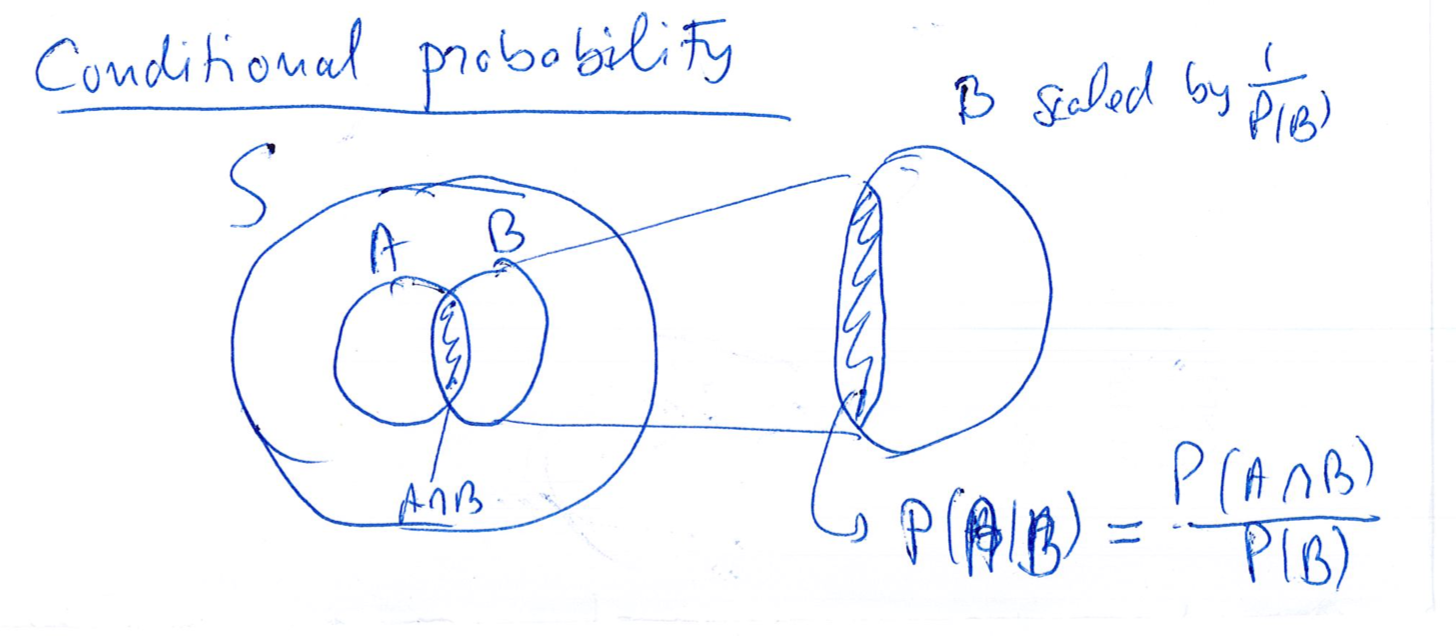 Conditional probability
B scaled by 1/P(B)
S
A
B
A∩B
P(A|B) = P(A∩B)/P(B)